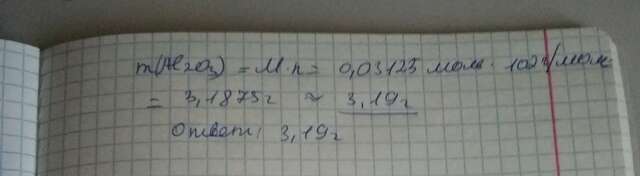 m(Al2O3) = M·n = 0,03123 моль · 102 г/моль
= 3,1875г ≈ 3,19г
Ответ: 3,19г